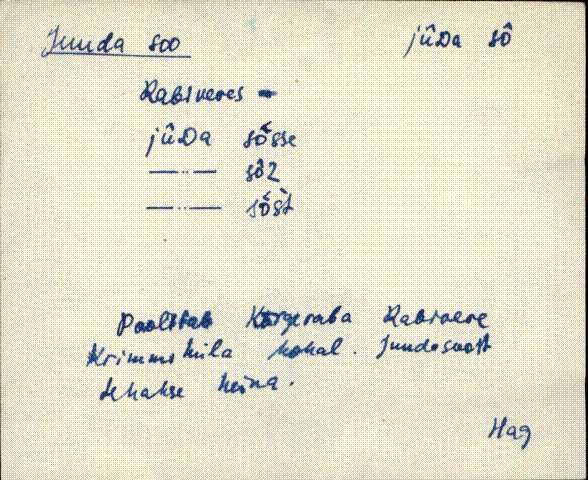 Juuda soo
jûDa sô
Rabivere
jûDa sôsse
—..— sôz
—..— sôst
Poolitab Kõrgeraba Rabivere
Krimmi küla kohal. Juudasoost
tehakse heina.
Hag